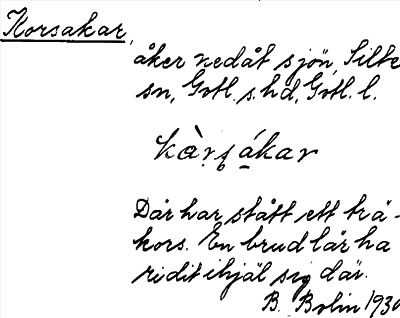 Korsakar,
åker nedåt sjön, Silte
sn, Gotl. s. hd, Gotl. l.
kàrsákar
Där har stått ett trä-
kors. En brud lär ha
ridit ihjäl sig där.
B. Bolin 1930